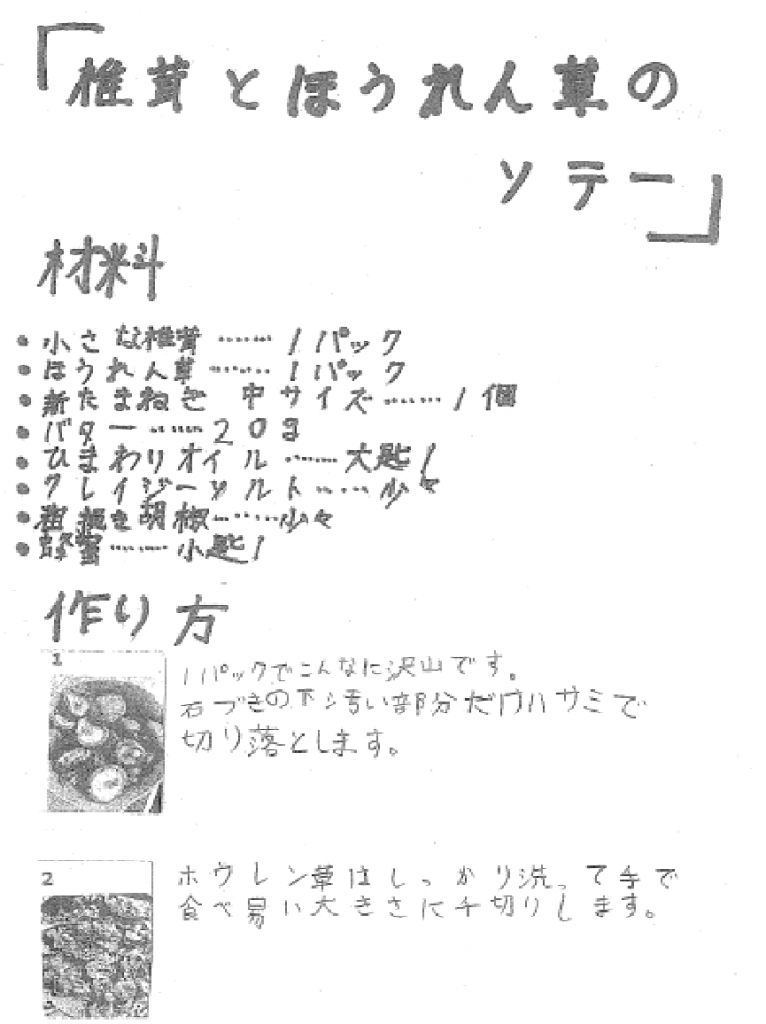 「椎茸とほうれん草の
ソテー」
材料
•小さな椎茸……1パック
•ほうれん草……1パック
•新たまねぎ 中サイズ……1個
•バター……20g
•ひまわりオイル……大匙1
•クレイジーソルト……少々
•粗挽き胡椒……少々
•蜂蜜……小匙1
作り方
1
1パックでこんなに沢山です。
石づきの下汚い部分だけハサミで
切り落とします。
2
ホウレン草はしっかり洗って手で
食べ易い大きさに千切りします。